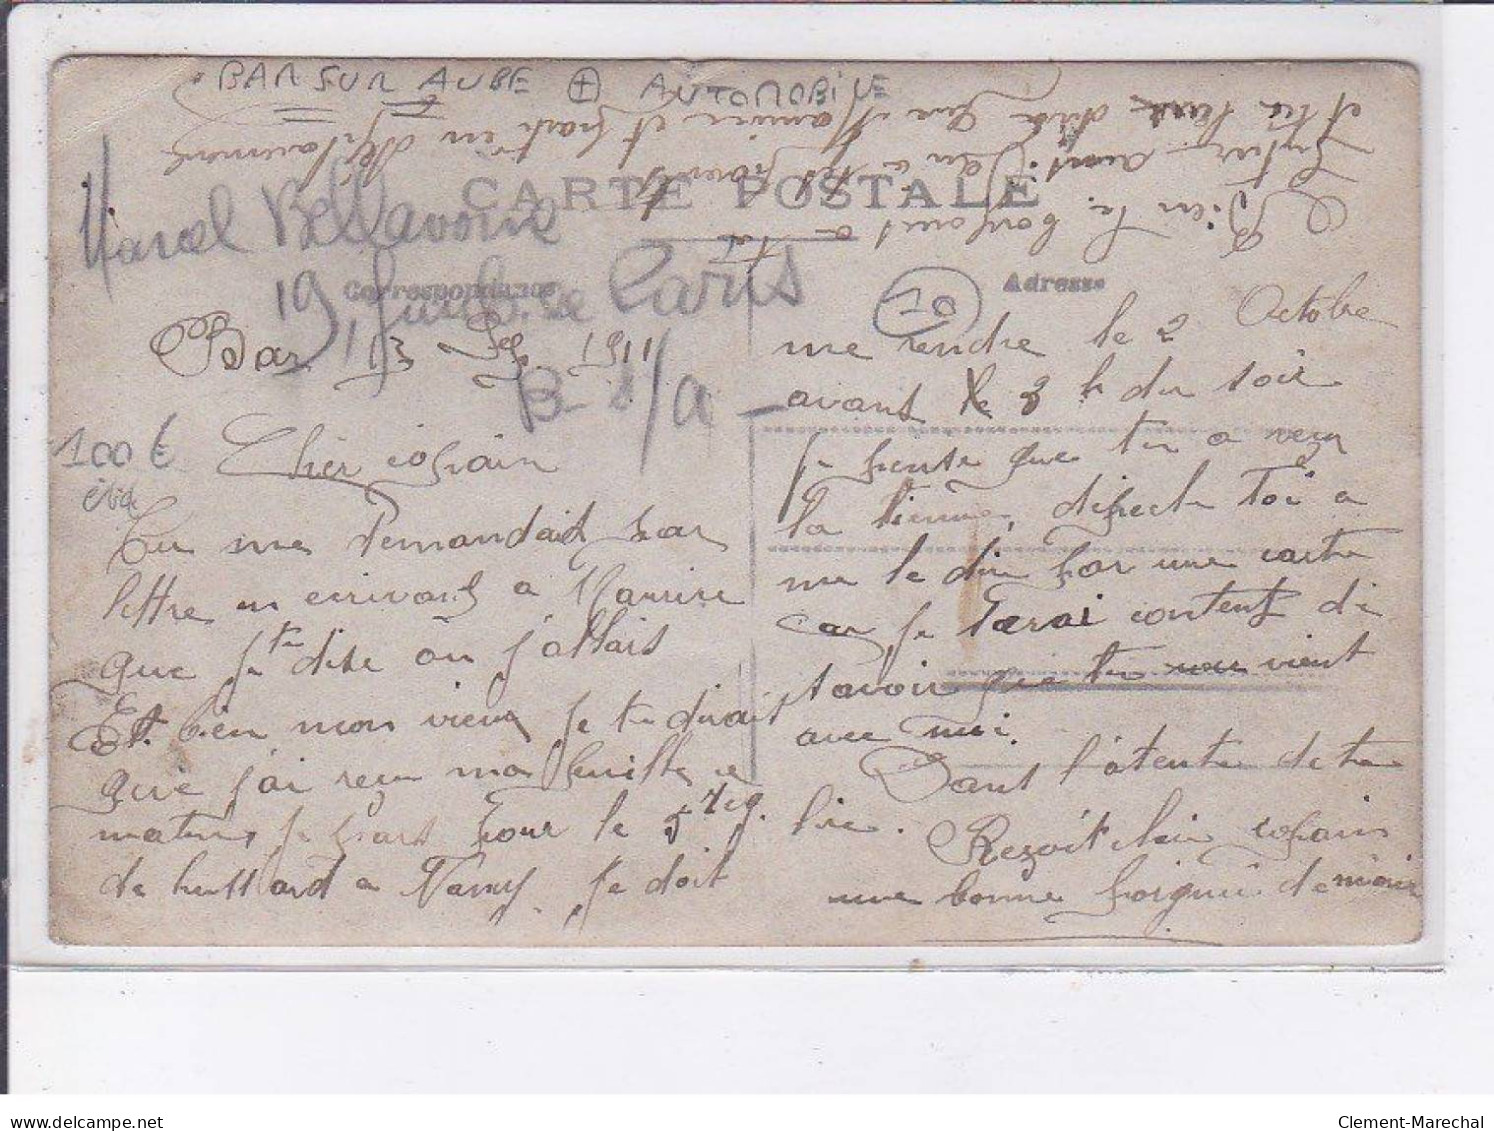 BAR SUR AUBE + AUTOMOBILE
CARTE POSTALE
Marcel Bellavoine
19 Faub. de Paris
B- s/a
Correspondance
Adresse
10
100 €
Bar 1911
Cher copain
Tu me demandait par
lettre en écrivant a Maurice
que je te dise ou j'allais
Et bien mon vieux je te dirait
que j'ai reçu ma feuille ce
matin, je pars pour le 5 Reg.
de hussard a Nancy. je doit
me rendre le 2 Octobre
avant le 3 h du soir
je pense que tu a reçu
la tienne, depeche Toi a
me le dire par une carte
car je serai content de
savoir que tu vient
avec moi.
Dans l'atente de te
lire.
Reçoit cher copain
une bonne poignée de
Bien le bonjour a toi